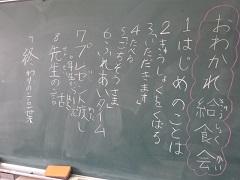 おわかれ給食会
1 はじめのことば
2 きゅうしょくをくばる
3 いただきます
4 たべる
5 ごちそうさま
6 ふれあいタイム
7 プレゼント渡し
8 先生の話
9 終わりの言葉